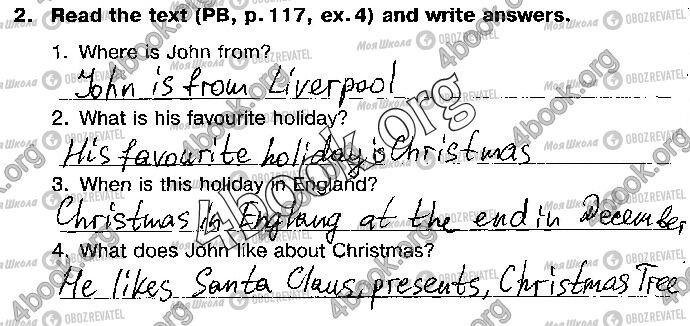 2. Read the text (PB, p. 117, ex. 4) and write answers.
1. Where is John from?
John is from Liverpool
2. What is his favourite holiday?
His favourite holiday is Christmas
3. When is this holiday in England?
Christmas in Englang at the end in December
4. What does John like about Christmas?
He likes Santa Claus, presents, Christmas Tree